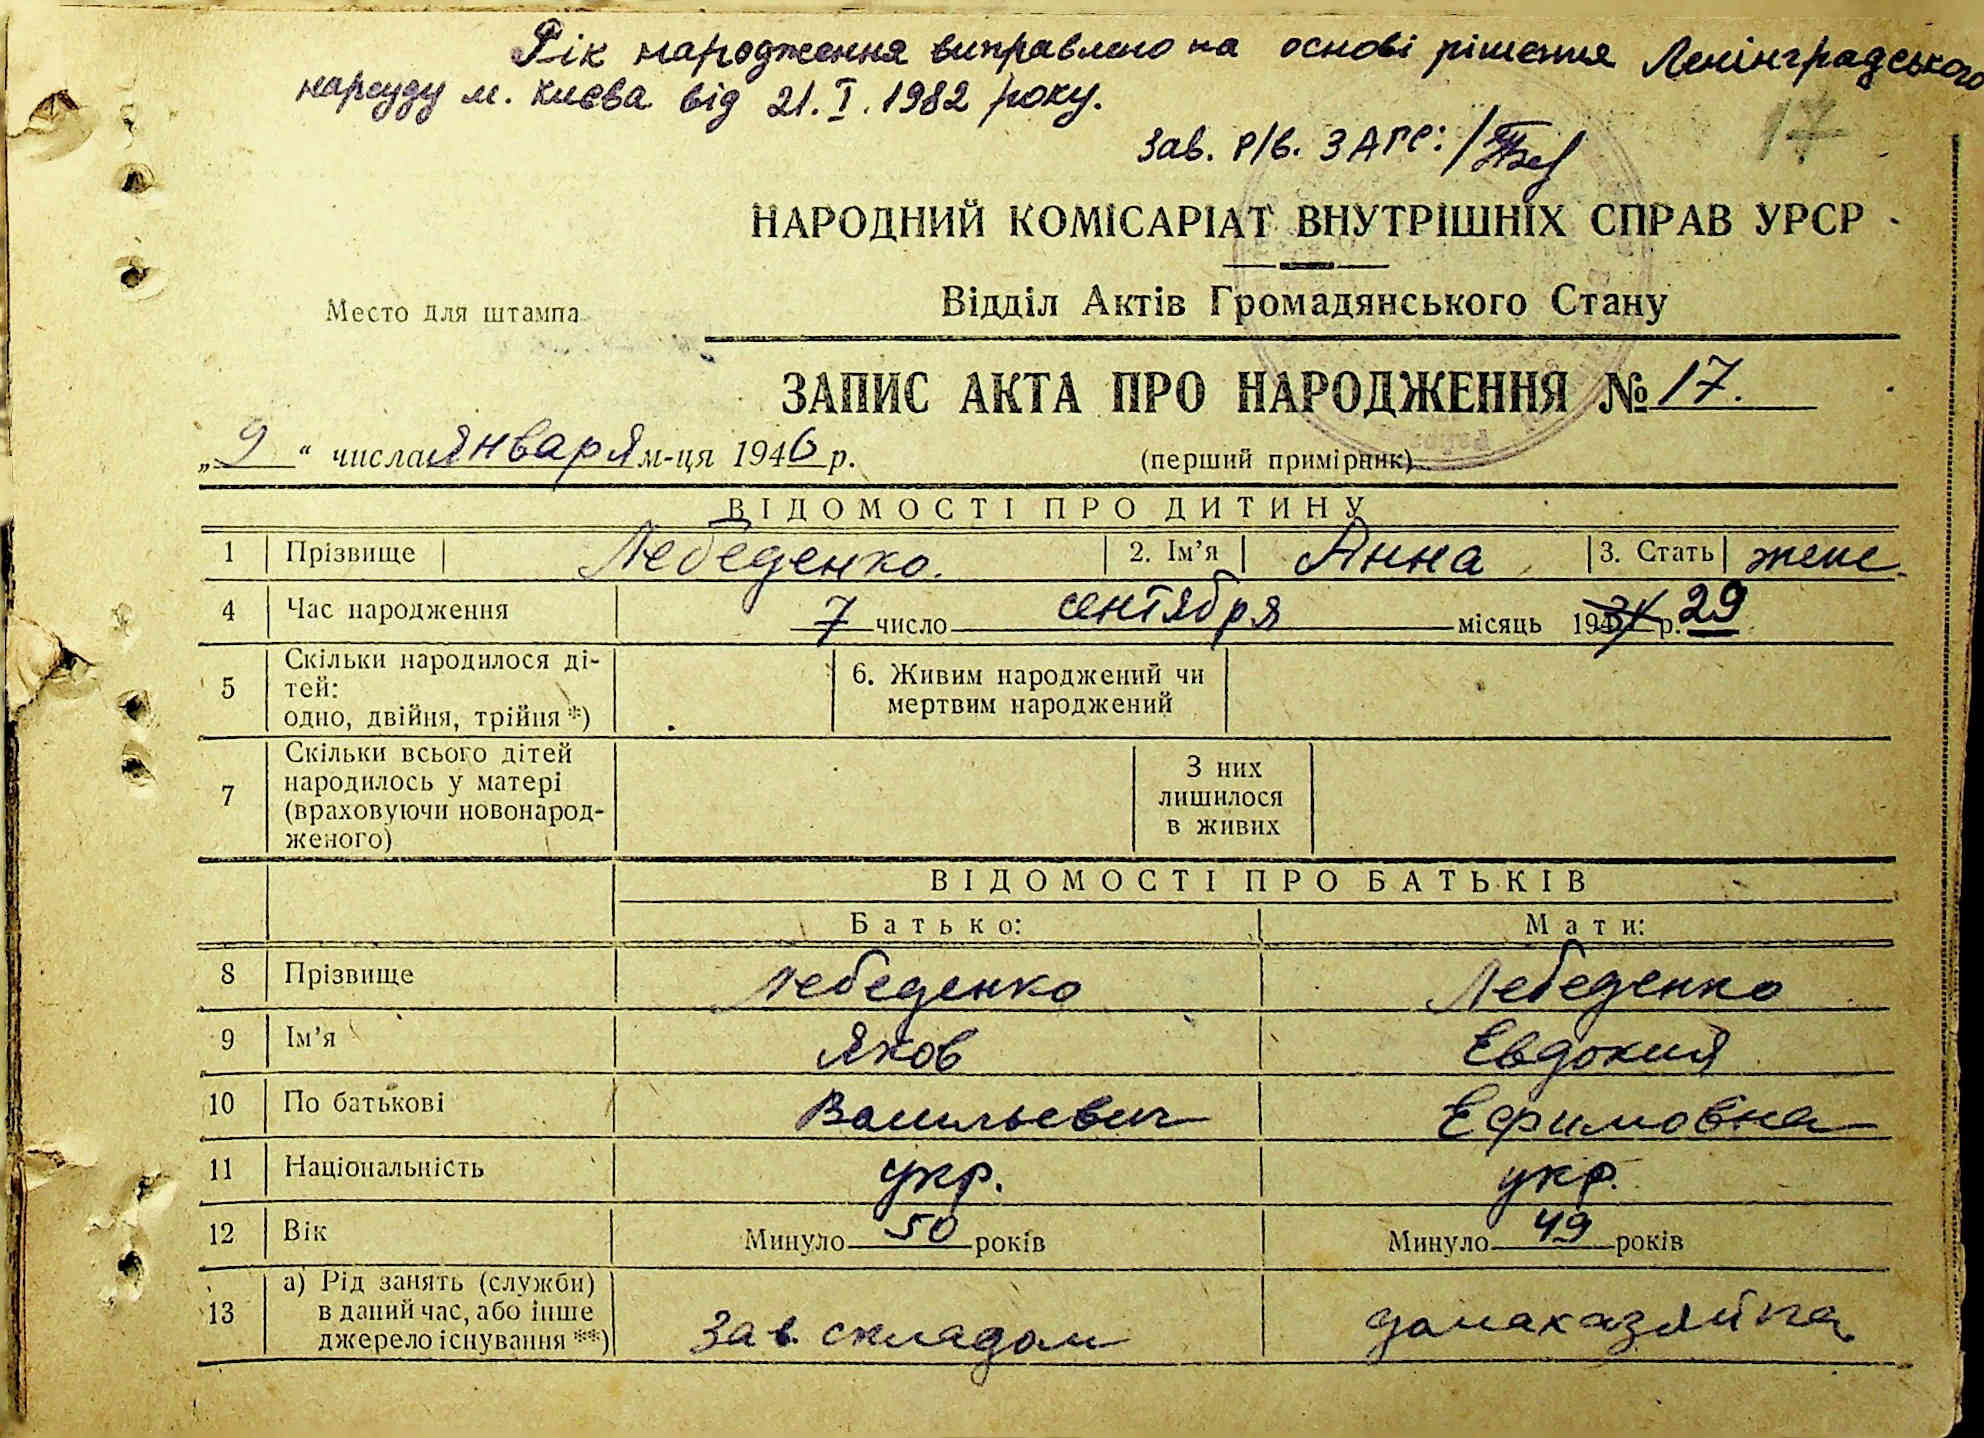 Рік народження виправлено на основі рішення Ленінградського
нарсуду м. Києва від 21.I.1982 року.
Зав. р/в. ЗАГС:
17
НАРОДНИЙ КОМІСАРІАТ ВНУТРІШНІХ СПРАВ УРСР
Відділ Актів Громадянського Стану
Место для штампа
ЗАПИС АКТА ПРО НАРОДЖЕННЯ № 17.
„9“ числа января м-ця 1946 р.
(перший примірник)
ВІДОМОСТІ ПРО ДИТИНУ
1 Прізвище Лебеденко. 2. Ім'я Анна 3. Стать женс.
4 Час народження 7 число сентября місяць 19 р. 29
5 Скільки народилося ді-
тей:
одно, двійня, трійня *)
6. Живим народжений чи
мертвим народжений
7 Скільки всього дітей
народилось у матері
(враховуючи новонарод-
женого)
З них
лишилося
в живих
ВІДОМОСТІ ПРО БАТЬКІВ
Батько: Мати:
8 Прізвище Лебеденко Лебеденко
9 Ім'я Яков Евдокия
10 По батькові Васильевич Ефимовна
11 Національність укр. укр.
12 Вік Минуло 50 років Минуло 49 років
13 а) Рід занять (служби)
в даний час, або інше
джерело існування **)
Зав. складом домахазяйка